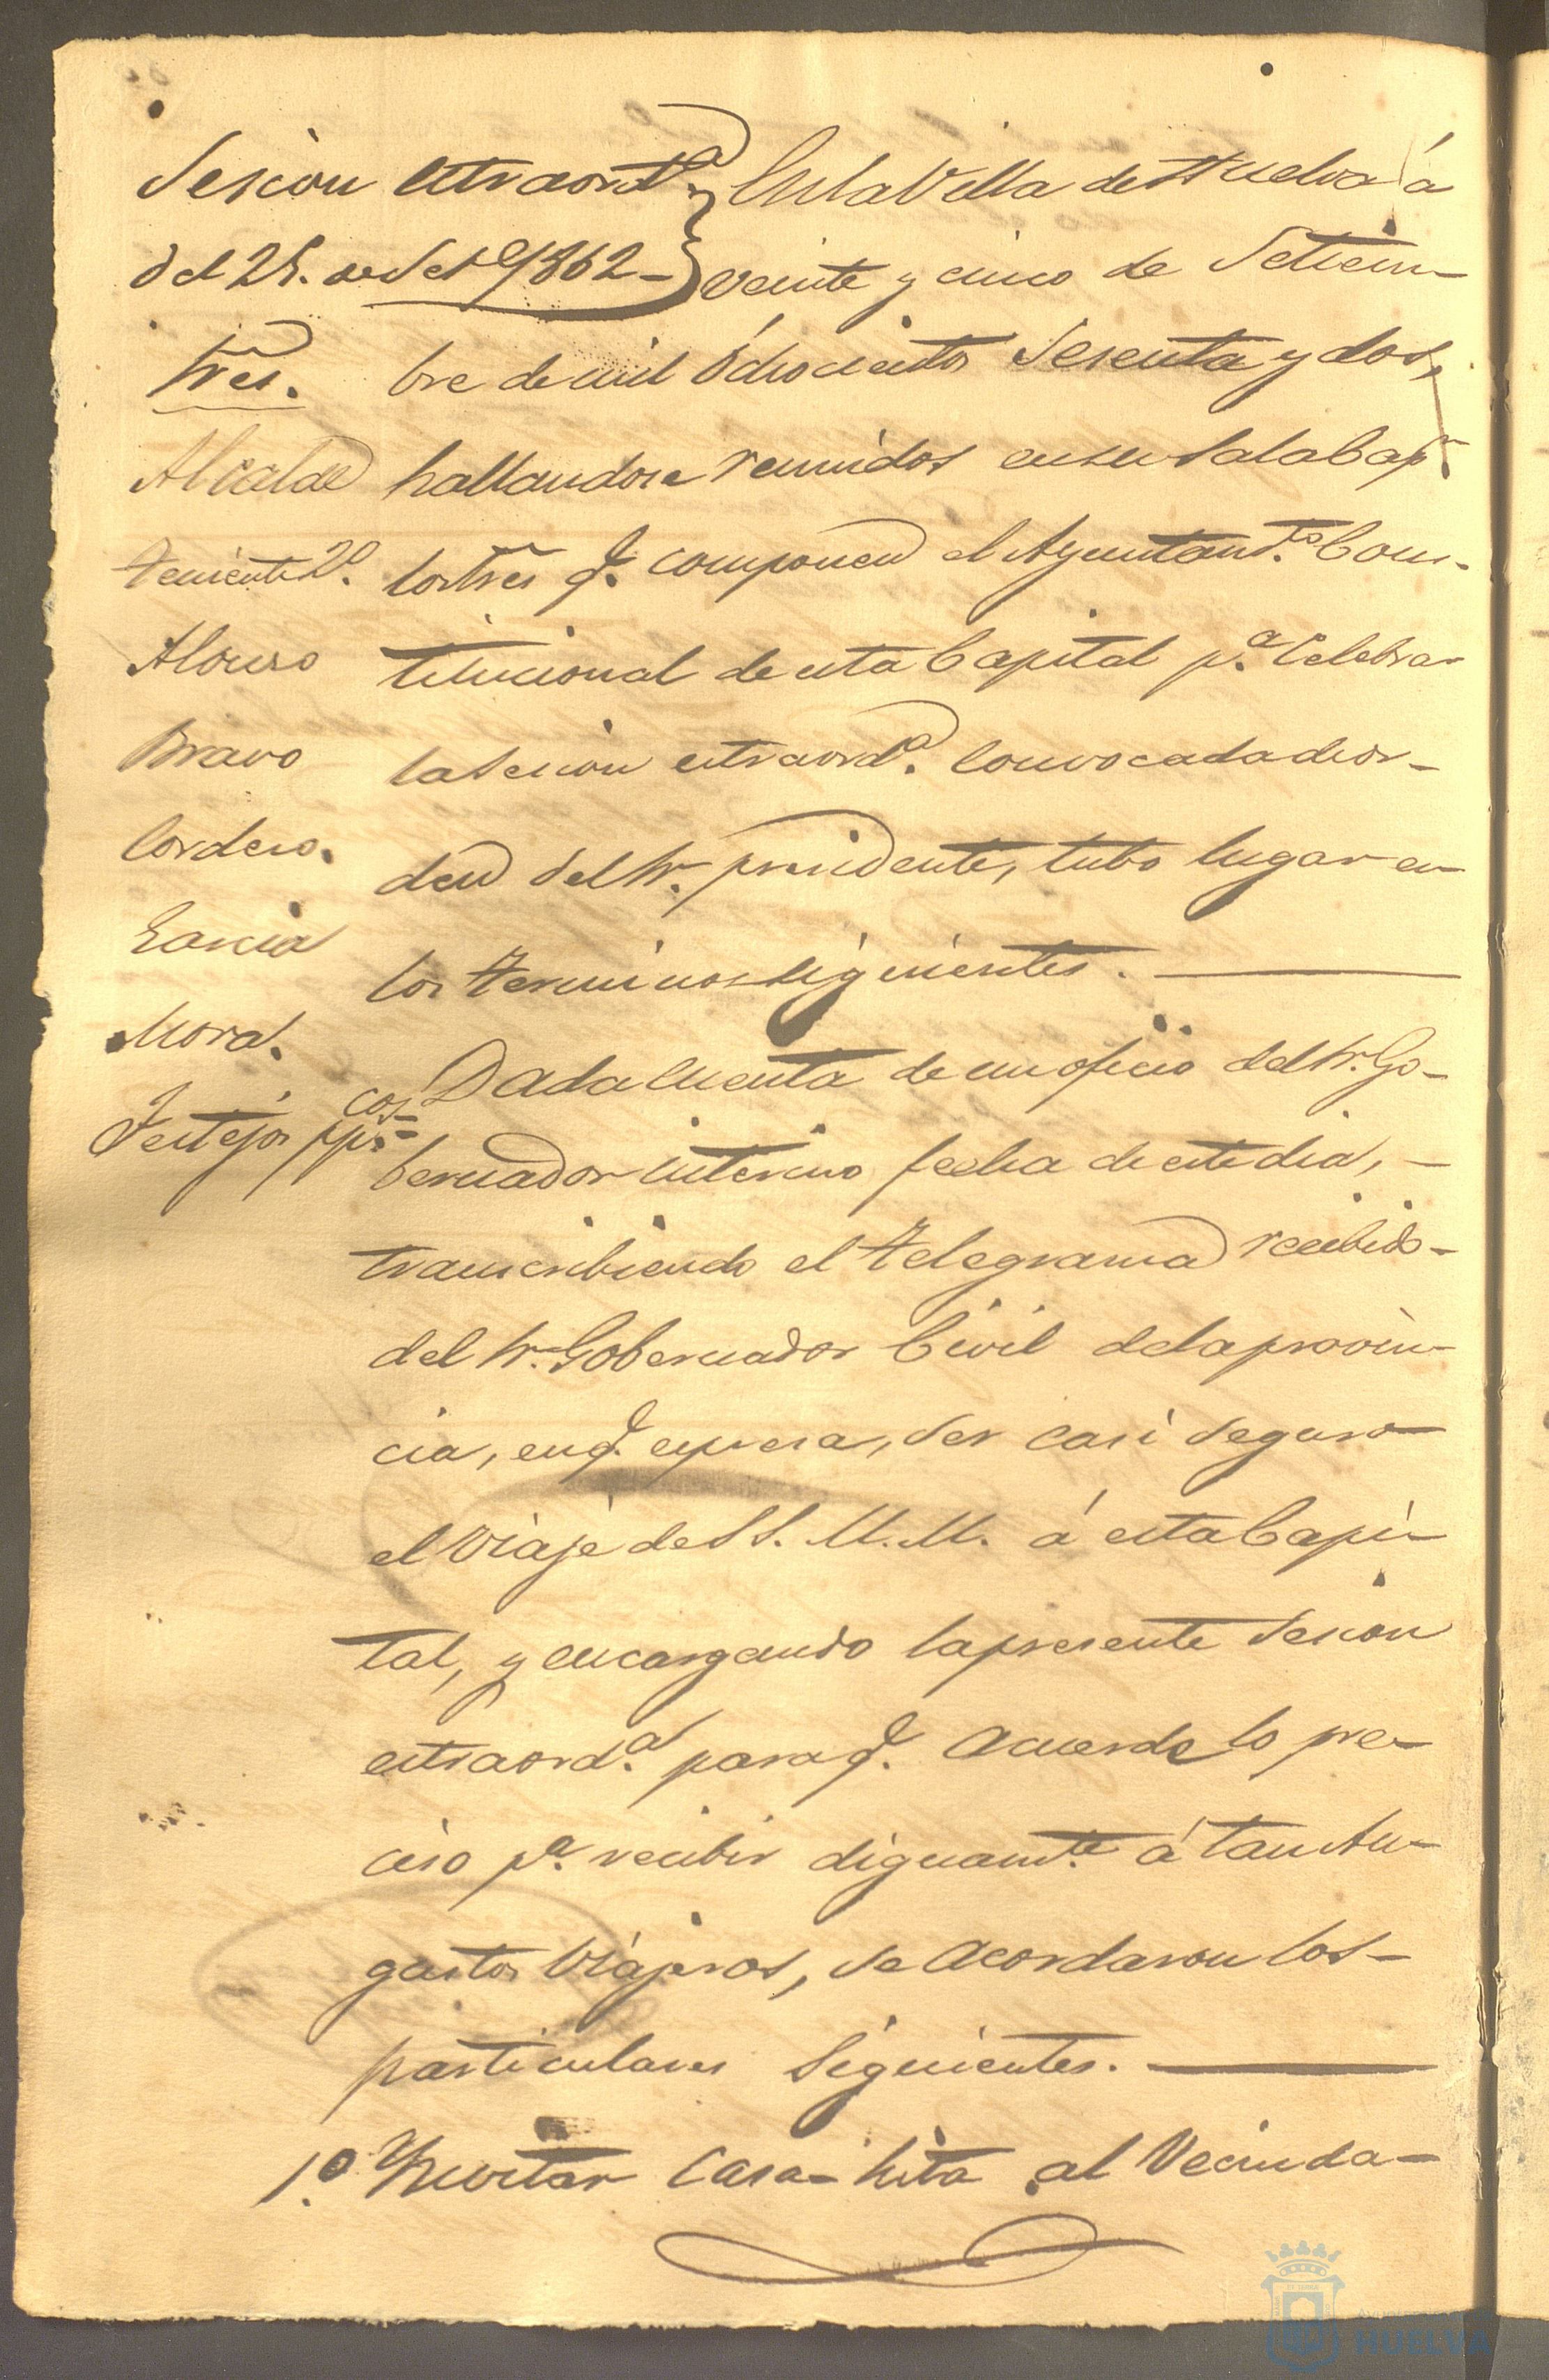 Sesion estraord.ª
del 25. de Set.e 1862-
Sres.
Alcalde
Teniente 2º.
Alonso
Bravo
Cordero.
Garcia
Mora.
Festejos ppcos.=
En la Villa de Huelva á
veinte y cinco de Setiem-
bre de mil ochocientos sesenta y dos,
hallandose reunidos en su Sala Capr.
los Sres q.e componen el Ayuntam.to Cons-
titucional de esta Capital p.a celebrar
la sesion estraord.a convocada de or-
den del Sr. presidente, tubo lugar en
los terminos siguientes.
Dada cuenta de un oficio del Sr. Go-
bernador interino fecha de este dia, -
transcribiendo el telegrama recibido-
del Sr. Gobernador Civil de la provin-
cia, en q.e espresa, ser casi seguro
el viaje de SS. M.M. á esta Capi-
tal, y encargando la presente sesion
estraord.a para q.e acuerde lo pre-
ciso p.a recibir dignam.te á tan Au-
gustos viajeros, se acordaron los-
particulares siguientes.
1.º Ynvitar casa-hita al Vecinda-
HUELVA